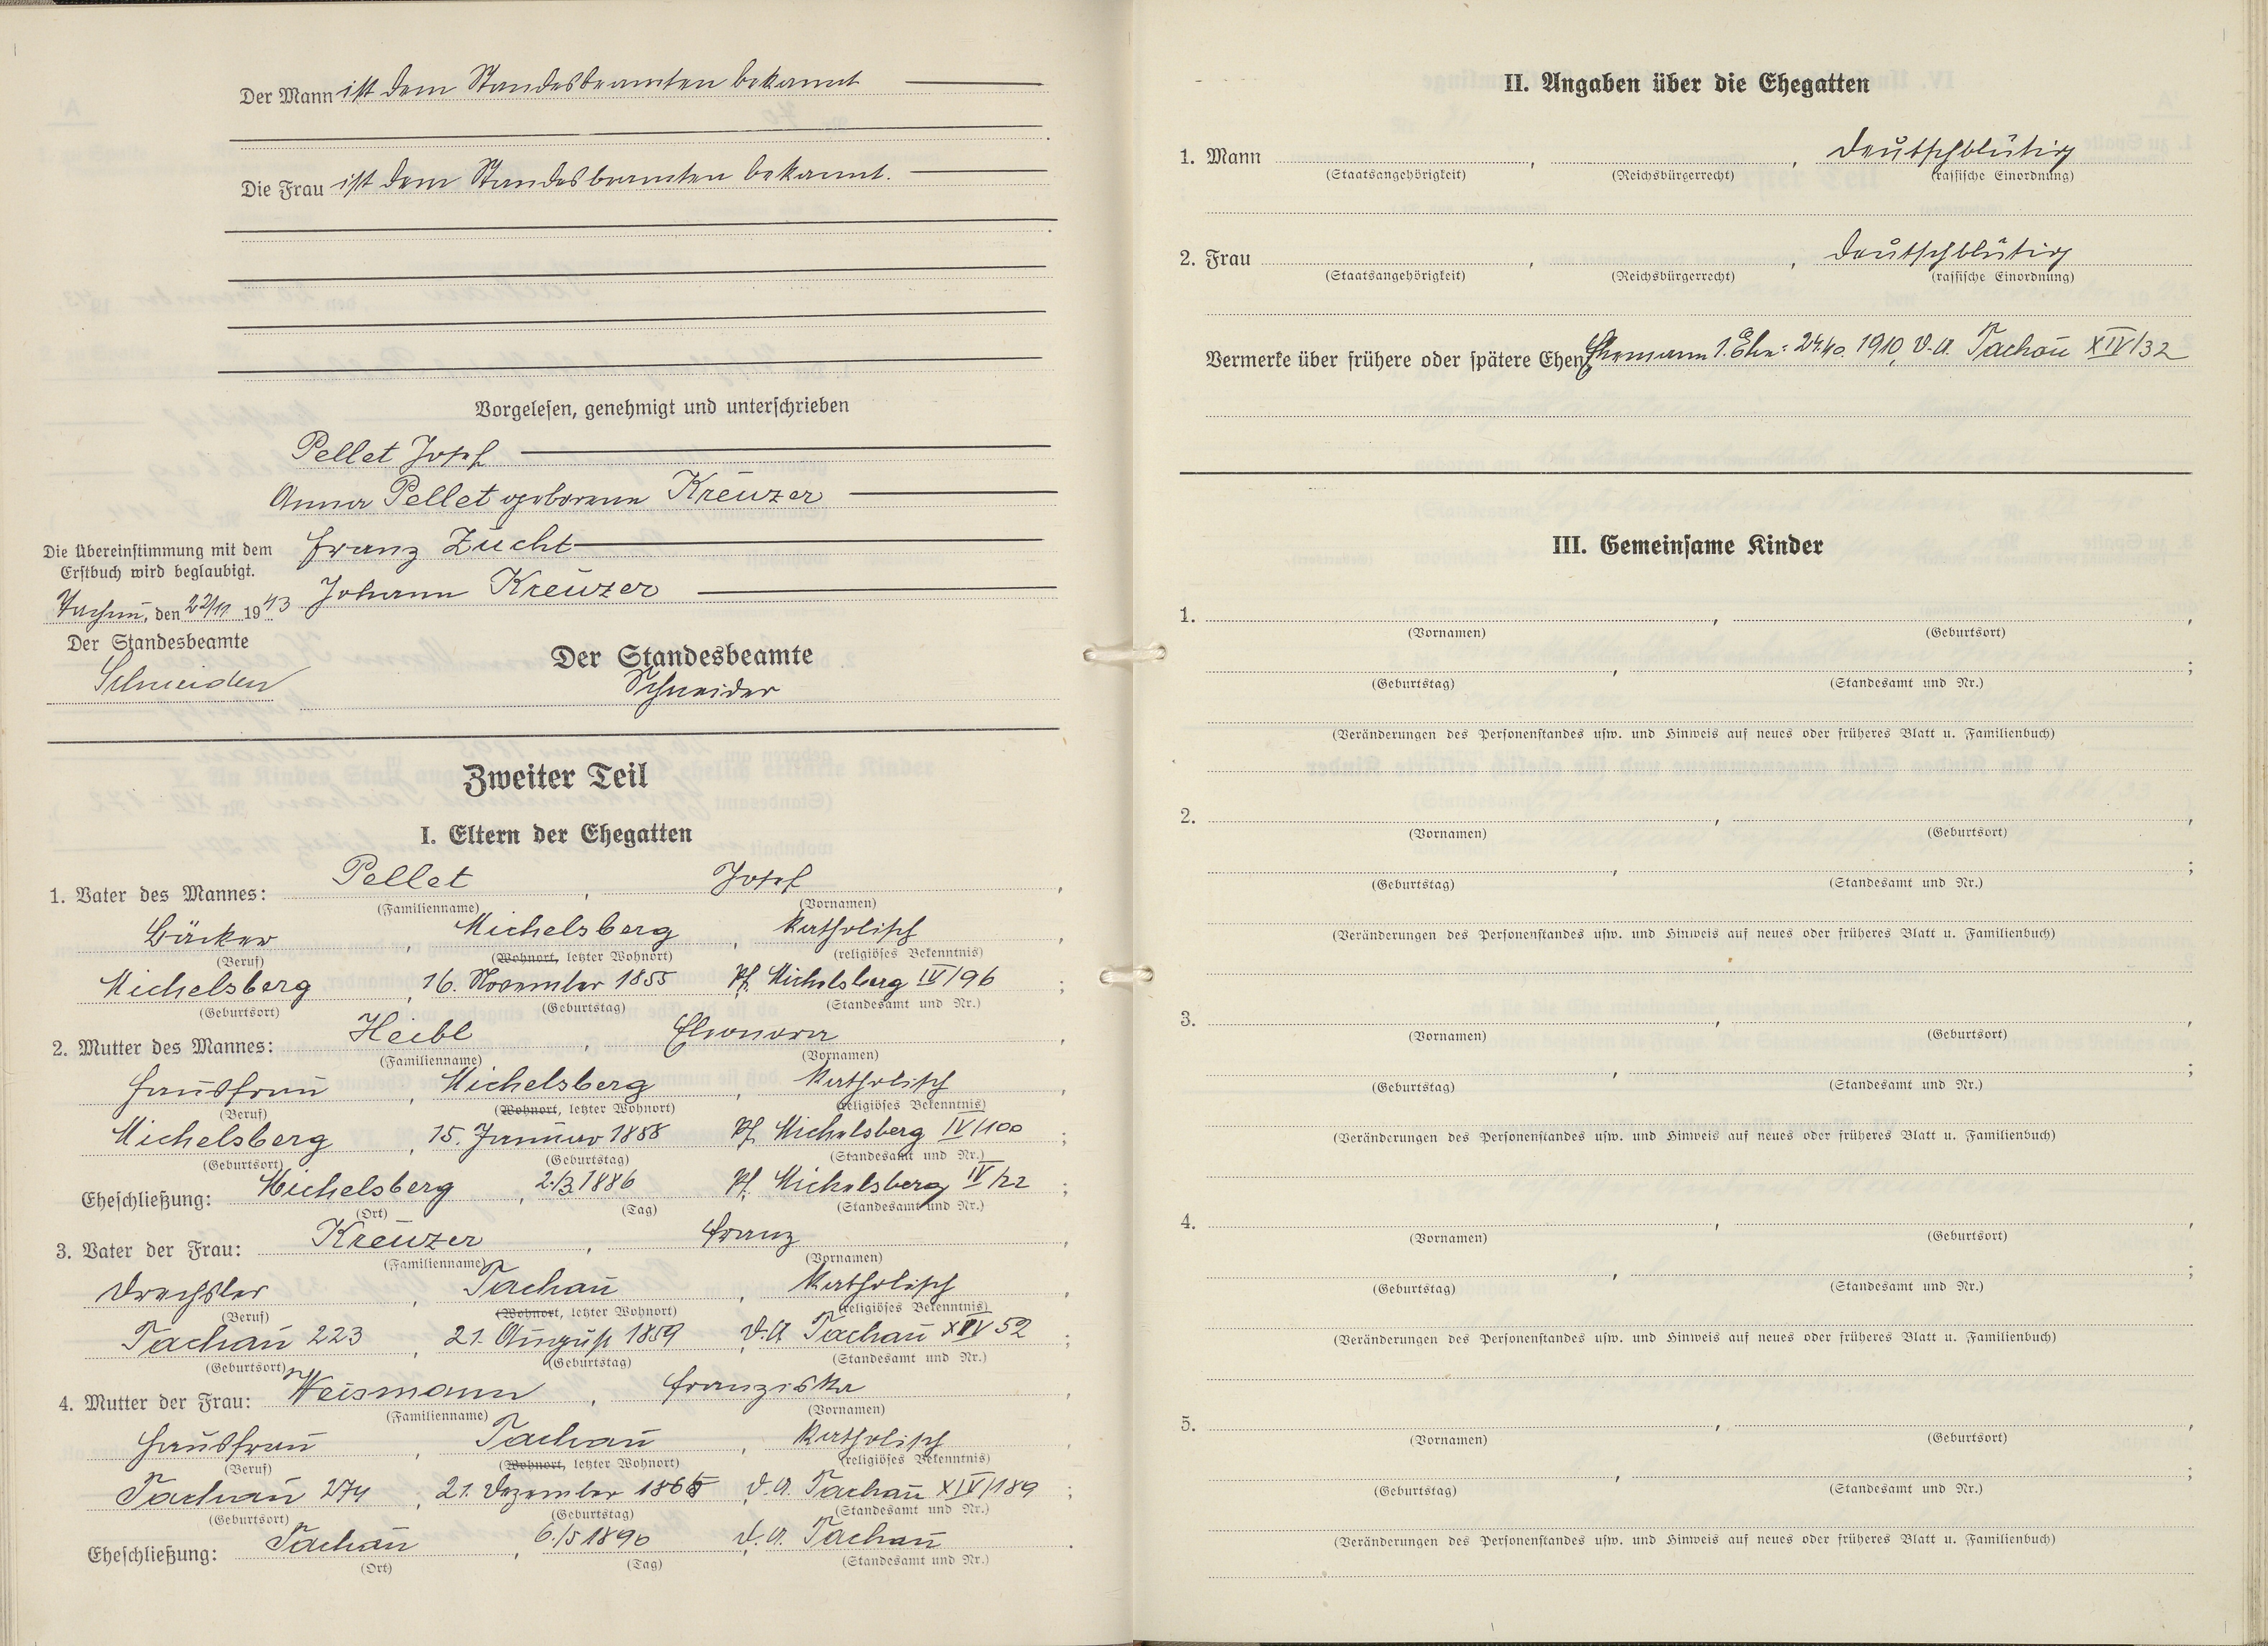 Der Mann ist dem Standesbeamten bekannt
Die Frau ist dem Standesbeamten bekannt.
Vorgelesen, genehmigt und unterschrieben
Pellet Josef
Anna Pellet geborene Kreuzer
Franz Zucht
Johann Kreuzer
Die Übereinstimmung mit dem
Erstbuch wird beglaubigt.
Tachau, den 22/11 1943
Der Standesbeamte
Schneider
Der Standesbeamte
Schneider
Zweiter Teil
I. Eltern der Ehegatten
1. Vater des Mannes: Pellet, Josef,
(Familienname) (Vornamen)
Bäcker, Michelsberg, katholisch,
(Beruf) (Wohnort, letzter Wohnort) (religiöses Bekenntnis)
Michelsberg, 16. November 1855 Pf. Michelsberg IV/96;
(Geburtsort) (Geburtstag) (Standesamt und Nr.)
2. Mutter des Mannes: Heibl, Eleonora,
(Familienname) (Vornamen)
Hausfrau, Michelsberg, katholisch,
(Beruf) (Wohnort, letzter Wohnort) (religiöses Bekenntnis)
Michelsberg, 15. Januar 1858 Pf. Michelsberg IV/100;
(Geburtsort) (Geburtstag) (Standesamt und Nr.)
Eheschließung: Michelsberg, 2./3. 1886 Pf. Michelsberg IV/22;
(Ort) (Tag) (Standesamt und Nr.)
3. Vater der Frau: Kreuzer, Franz,
(Familienname) (Vornamen)
Drechsler, Tachau, katholisch,
(Beruf) (Wohnort, letzter Wohnort) (religiöses Bekenntnis)
Tachau 223, 21. August 1859, D.A. Tachau 52;
(Geburtsort) (Geburtstag) (Standesamt und Nr.)
4. Mutter der Frau: Weismann, Franziska,
(Familienname) (Vornamen)
Hausfrau, Tachau, katholisch,
(Beruf) (Wohnort, letzter Wohnort) (religiöses Bekenntnis)
Tachau 274, 21. Dezember, D.A. Tachau XIV/189;
(Geburtsort) (Geburtstag) (Standesamt und Nr.)
Eheschließung: Tachau, 6./5 1890, D.A. Tachau.
(Ort) (Tag) (Standesamt und Nr.)
II. Angaben über die Ehegatten
1. Mann , , deutschblütig
(Staatsangehörigkeit) (Reichsbürgerrecht) (rassische Einordnung)
2. Frau , , deutschblütig
(Staatsangehörigkeit) (Reichsbürgerrecht) (rassische Einordnung)
Vermerke über frühere oder spätere Ehen: Ehemann 1. Ehe: 1910, D.A. Tachau XIV/32
III. Gemeinsame Kinder
1. , ,
(Vornamen) (Geburtsort)
, ;
(Geburtstag) (Standesamt und Nr.)
(Veränderungen des Personenstandes usw. und Hinweis auf neues oder früheres Blatt u. Familienbuch)
2. , ,
(Vornamen) (Geburtsort)
, ;
(Geburtstag) (Standesamt und Nr.)
(Veränderungen des Personenstandes usw. und Hinweis auf neues oder früheres Blatt u. Familienbuch)
3. , ,
(Vornamen) (Geburtsort)
, ;
(Geburtstag) (Standesamt und Nr.)
(Veränderungen des Personenstandes usw. und Hinweis auf neues oder früheres Blatt u. Familienbuch)
4. , ,
(Vornamen) (Geburtsort)
, ;
(Geburtstag) (Standesamt und Nr.)
(Veränderungen des Personenstandes usw. und Hinweis auf neues oder früheres Blatt u. Familienbuch)
5. , ,
(Vornamen) (Geburtsort)
, ;
(Geburtstag) (Standesamt und Nr.)
(Veränderungen des Personenstandes usw. und Hinweis auf neues oder früheres Blatt u. Familienbuch)